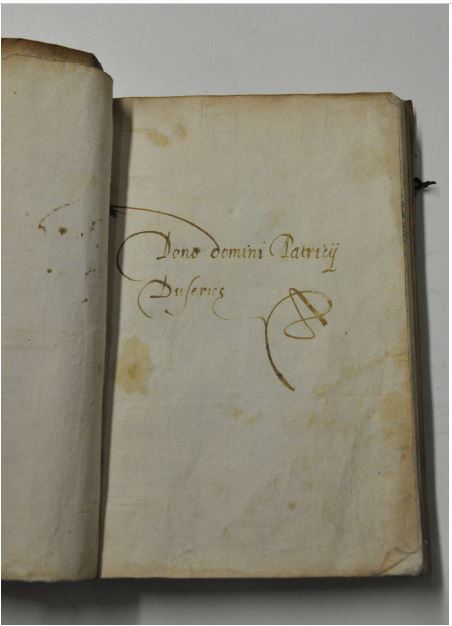 Dono domini Patricij
Duferies